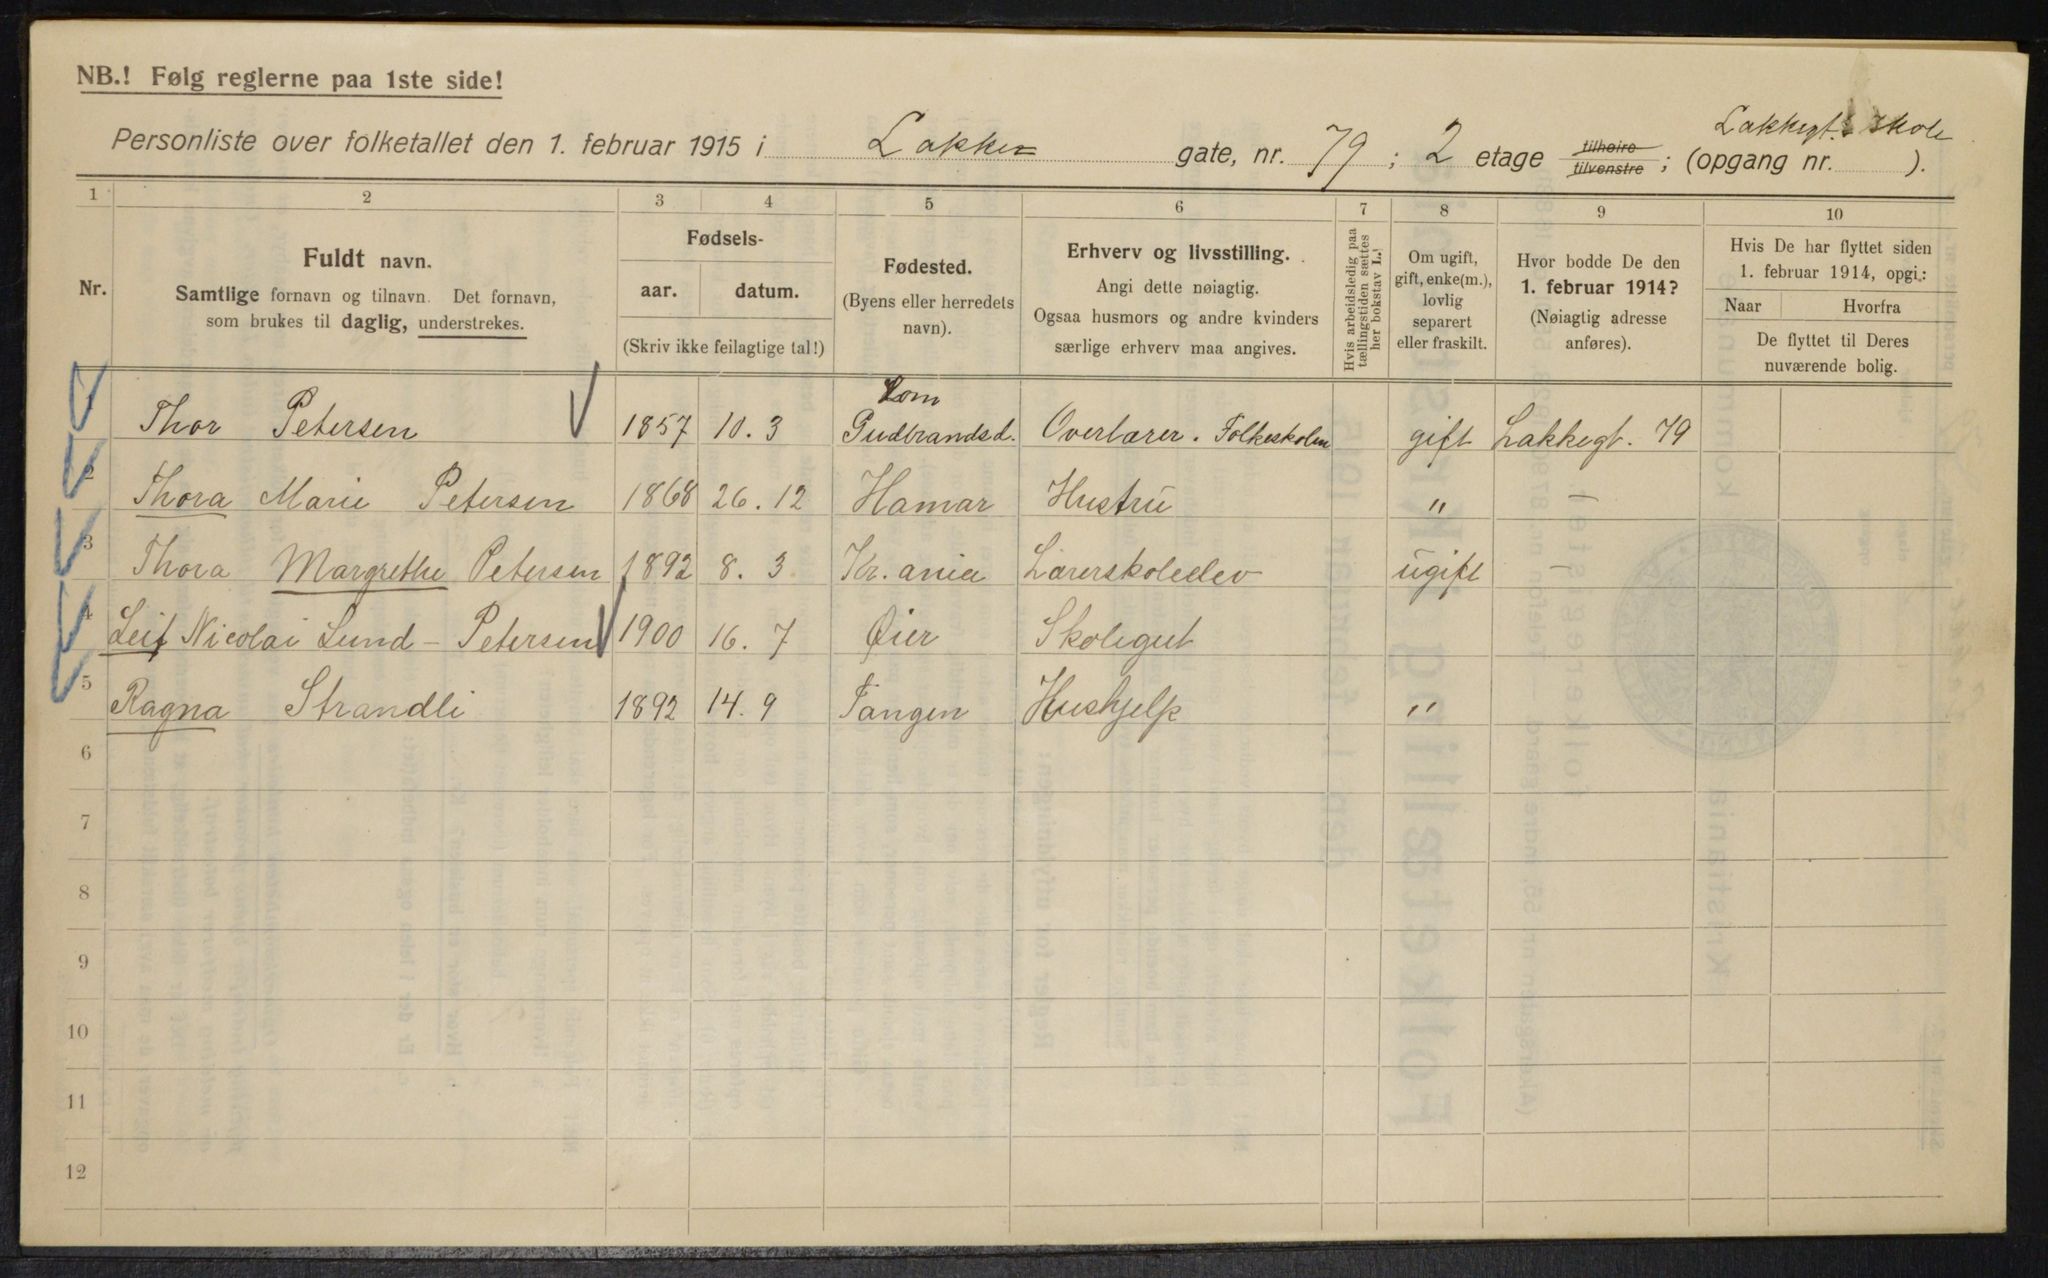 NB.! Følg reglerne paa 1ste side!
Lakkegt. skole
Personliste over folketallet den 1. februar 1915 i Lakken gate, nr. 79; 2 etage tilhøire tilvenstre; (opgang nr. ).
1 2 3 4 5 6 7 8 9 10
Nr.
Fuldt navn.
Samtlige fornavn og tilnavn. Det fornavn,
som brukes til daglig, understrekes.
Fødsels-
aar. datum.
(Skriv ikke feilagtige tal!)
Fødested.
(Byens eller herredets
navn).
Erhverv og livsstilling.
Angi dette nøiagtig.
Ogsaa husmors og andre kvinders
særlige erhverv maa angives.
Hvis arbeidsledig paa
tællingstiden sættes
her bokstav L.!
Om ugift,
gift, enke(m.),
lovlig
separert
eller fraskilt.
Hvor bodde De den
1. februar 1914?
(Nøiagtig adresse
anføres).
Hvis De har flyttet siden
1. februar 1914, opgi.:
Naar Hvorfra
De flyttet til Deres
nuværende bolig.
Lom
1 Thor Petersen 1857 10. 3 Gudbrandsd. Overlærer. Folkeskolen gift Lakkegt. 79
2 Thora Marie Petersen 1868 26. 12 Hamar Hustru " —
3 Thora Margrethe Petersen 1892 8. 3 Kr.ania Lærerskoleelev ugift —
4 Leif Nicolai Lund - Petersen 1900 16. 7 Øier Skolegut
5 Ragna Strandli 1892 14. 9 Tangen Hushjelp "
6
7
8
9
10
11
12